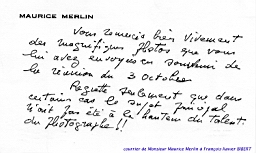 MAURICE MERLIN
Vous remercie bien vivement
des magnifiques photos que vous
lui avez envoyées en souvenir de
la réunion du 3 Octobre
Regrette seulement que dans
certains cas le sujet principal
n'ait pas été à la hauteur du talent
du Photographe !!
courrier de Monsieur Maurice Merlin à François Xavier BIBERT